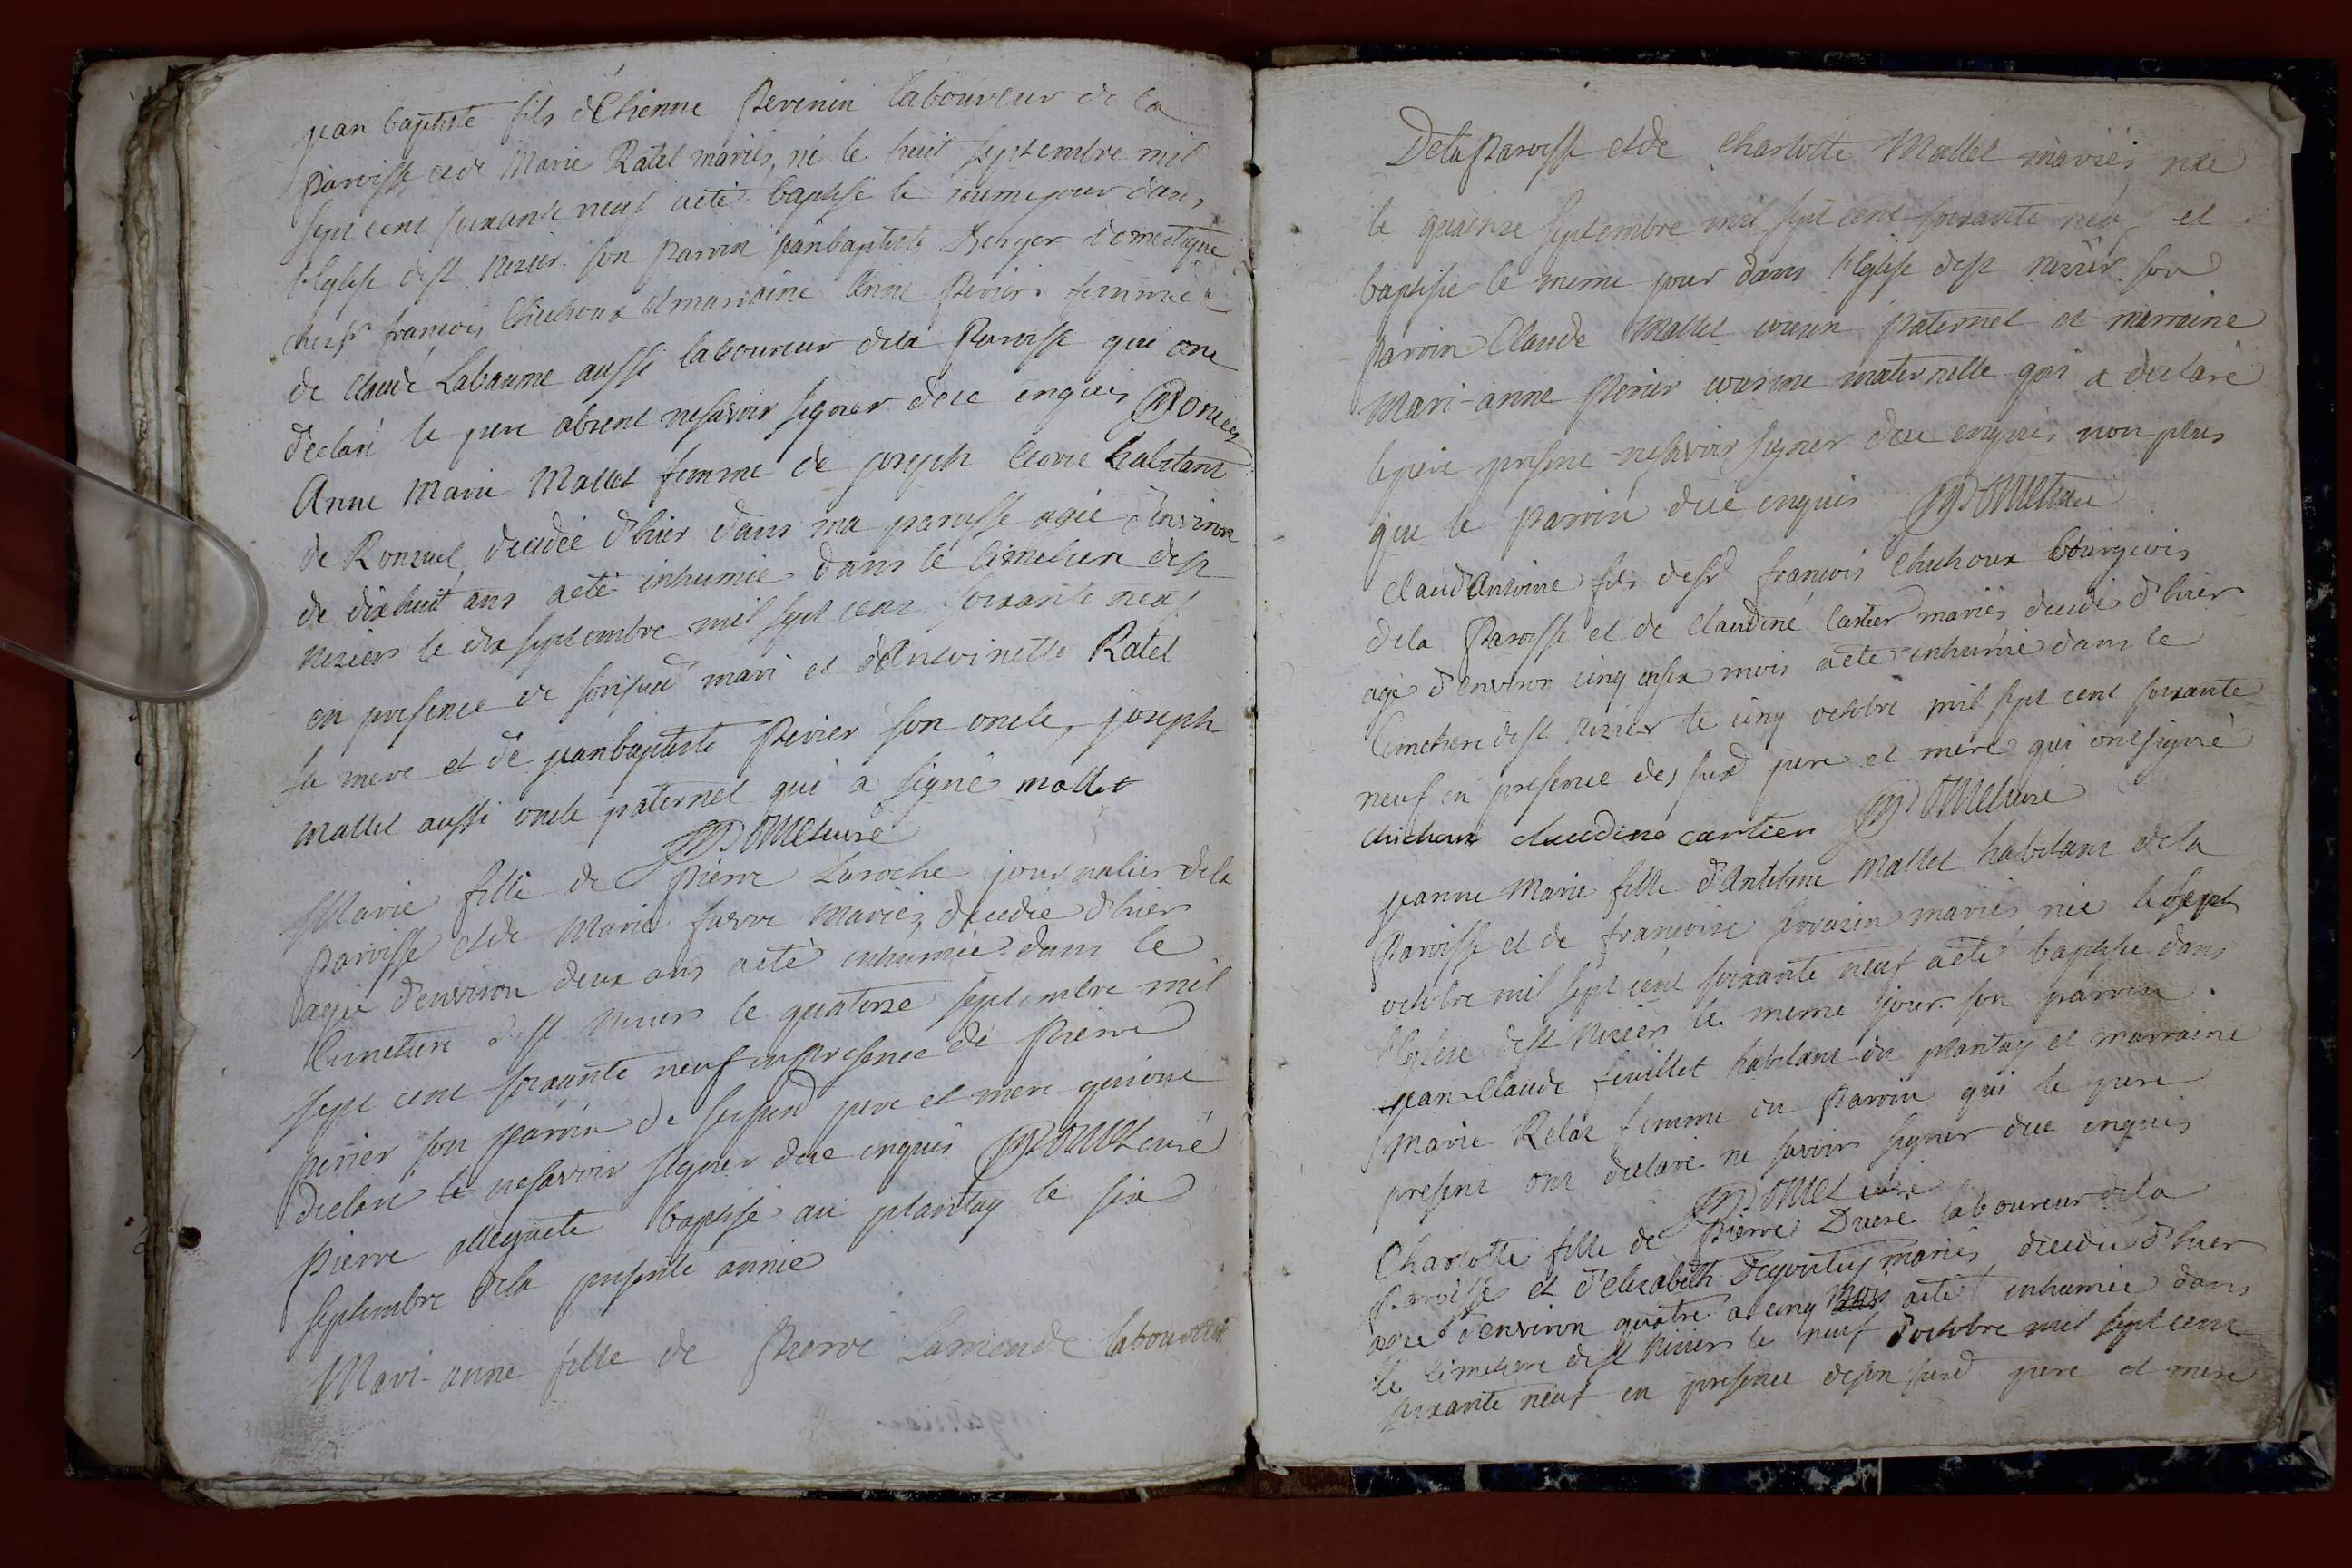 jean baptiste fils d'Etienne Perenin laboureur de la
paroisse et de Marie Ratel mariés, né le huit septembre mil
sept cent soixante neuf a eté baptisé le meme jour dans
l'Eglise de st Nizier son parrin jeanbaptiste Berger domestique
chez sr françois Chichoux et marraine Anne Perier femme
de Claude Labaume aussi laboureur de la Paroisse qui ont
declaré le pere absent ne savoir signer de ce enquis
Anne Marie Mallet femme de joseph habitant
de Ronzuel decedée d'hier dans ma paroisse agée d'environ
de dixhuit ans a eté inhumée dans le Cimetiere de st
Niziers le dix septembre mil sept cent soixante neuf
en presence de son sud mari et d'Antoinette Ratel
sa mere et de jeanbaptiste Perier son oncle, joseph
Mallet aussi oncle paternel qui a signé mallet

Marie fille de Pierre Laroche journalier de la
Paroisse et de Marie mariés, decedée d'hier
agée d'environ deux ans a eté inhumée dans le
Cimetiere de st Niziers le quatorze septembre mil
sept cent soixante neuf en presence de Pierre
Perier son parrin de ses sud pere et mere qui ont
declaré le ne savoir signer de ce enquis
Pierre baptisé au plantay le six
septembre de la presente année
Mari-anne fille de Pierre laboureur
De la Paroisse et de Charlotte Mallet mariés née
le quinze septembre mil sept cent soixante neuf et
baptisée le meme jour dans l'Eglise de st Nizier son
parrin Claude Mallet cousin paternel et marraine
Mari-anne Perier cousine maternelle qui a declaré
le pere present ne savoir signer de ce enquis non plus
que le parrin de ce enquis
Claud Antoine fils de sr françois Chichoux bourgeois
de la Paroisse et de Claudine Cartier mariés decedé d'hier
agé d'environ cinq a six mois a eté inhumé dans le
Cimetiere de st Nizier le cinq octobre mil sept cent soixante
neuf en presence des sud pere et mere qui ont signé
chichoux claudine cartier
jeanne Marie fille d'Antelme Mallet habitant de la
Paroisse et de françoise mariés née le sept
octobre mil sept cent soixante neuf a eté baptisée dans
l'Eglise de st Niziers le meme jour son parrin
jean Claude feuillet habitant du plantay et marraine
Marie femme du Parrin qui le pere
present ont declaré ne savoir signer de ce enquis

Charlotte fille de Pierre laboureur de la
Paroisse et d'elizabeth mariés decedée d'hier
agée d'environ quatre a cinq mois a eté inhumée dans
le Cimetiere de st Niziers le neuf d'octobre mil sept cent
soixante neuf en presence de son sud pere et mere